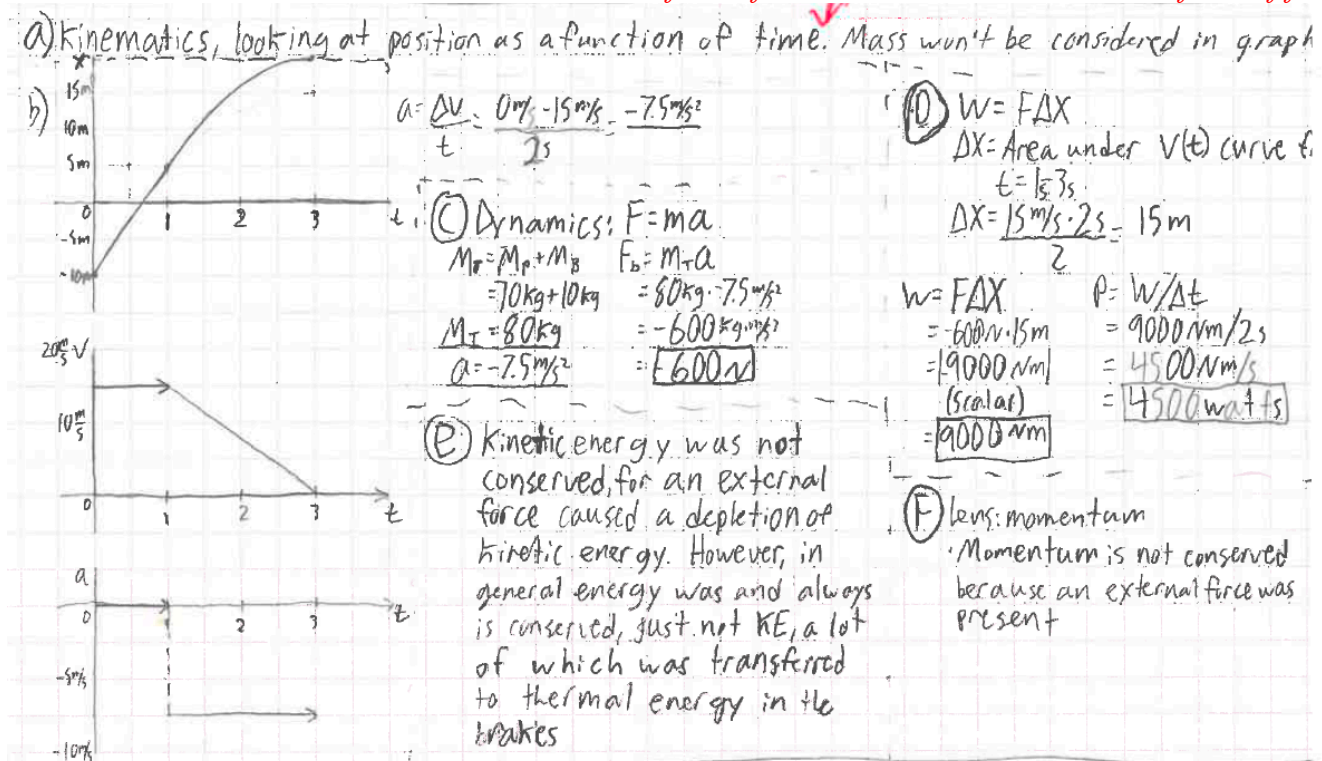 a) Kinematics, looking at position as a function of time. Mass won't be considered in graph
b)
x
15m
10m
5m
0
-5m
-10m
1 2 3 t
a = ΔV/t = (0m/s - 15m/s)/2s = -7.5m/s²
20m/s V
10m/s
0
1 2 3 t
a
0
1 2 3 t
-5m/s
-10m/s
C Dynamics: F=ma
M_T = M_P + M_B
=70kg+10kg
M_T = 80kg
a=-7.5m/s²
F_b = m_T a
=80kg·-7.5m/s²
=-600kg·m/s²
=-600N
D W=FΔX
ΔX=Area under V(t) curve
t=1s-3s
ΔX=(15m/s·2s)/2 = 15m
W=FΔX
=-600N·15m
=|9000Nm|
(scalar)
=9000Nm
P=W/Δt
=9000Nm/2s
=4500Nm/s
=4500watts
e Kinetic energy was not
conserved, for an external
force caused a depletion of
kinetic energy. However, in
general energy was and always
is conserved, just not KE, a lot
of which was transferred
to thermal energy in the
brakes
F Lens: momentum
·Momentum is not conserved
because an external force was
present